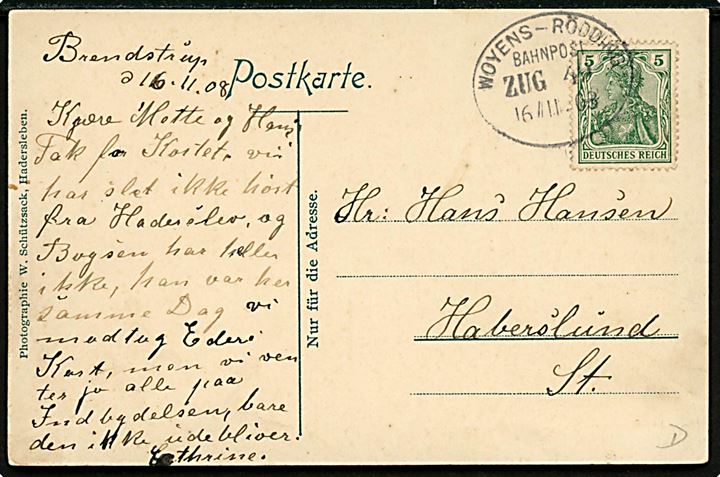 Brendstrup
d 16-11-08
Postkarte.
WOYENS-RÖDDING
BAHNPOST
ZUG
16/11.08
5 5
DEUTSCHES REICH
Kjære Mette og Hans
Tak for Kortet, vi
har slet ikke hört
fra Haderslev, og
Bogsen har heller
ikke, han var her
samme Dag vi
modtog Eders
Kort, men vi ven
ter jo alle paa
Indbydelsen, bare
den ikke udebliver.
Cathrine.
Hr: Hans Hansen
Haberslund
St.
Nur für die Adresse.
Photographie W. Schützsack, Hadersleben.
D